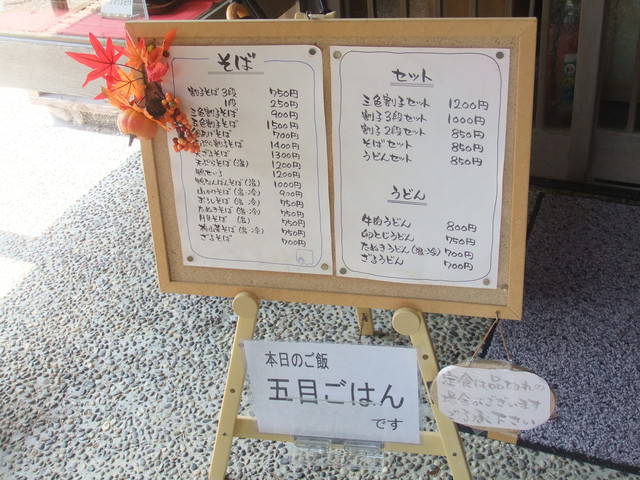 そば
割子そば 3段 750円
1段 250円
三色割子そば 900円
五色割子そば 1500円
700円
割子そば 1400円
天ざるそば 1300円
天ぷらそば(温) 1200円
鴨せいろ 1200円
鴨なんばんそば(温) 1000円
山かけそば(温・冷) 900円
おろしそば(温・冷) 750円
たぬきそば(温・冷) 750円
月見そば(温) 750円
山菜そば(温・冷) 750円
ざるそば 700円
セット
三色割子セット 1200円
割子3段セット 1000円
割子2段セット 850円
そばセット 850円
うどんセット 850円
うどん
牛肉うどん 800円
卵とじうどん 750円
たぬきうどん(温・冷) 700円
ざるうどん 700円
本日のご飯
五目ごはん
です
定食は品切れの
場合がございます
ご了承下さい